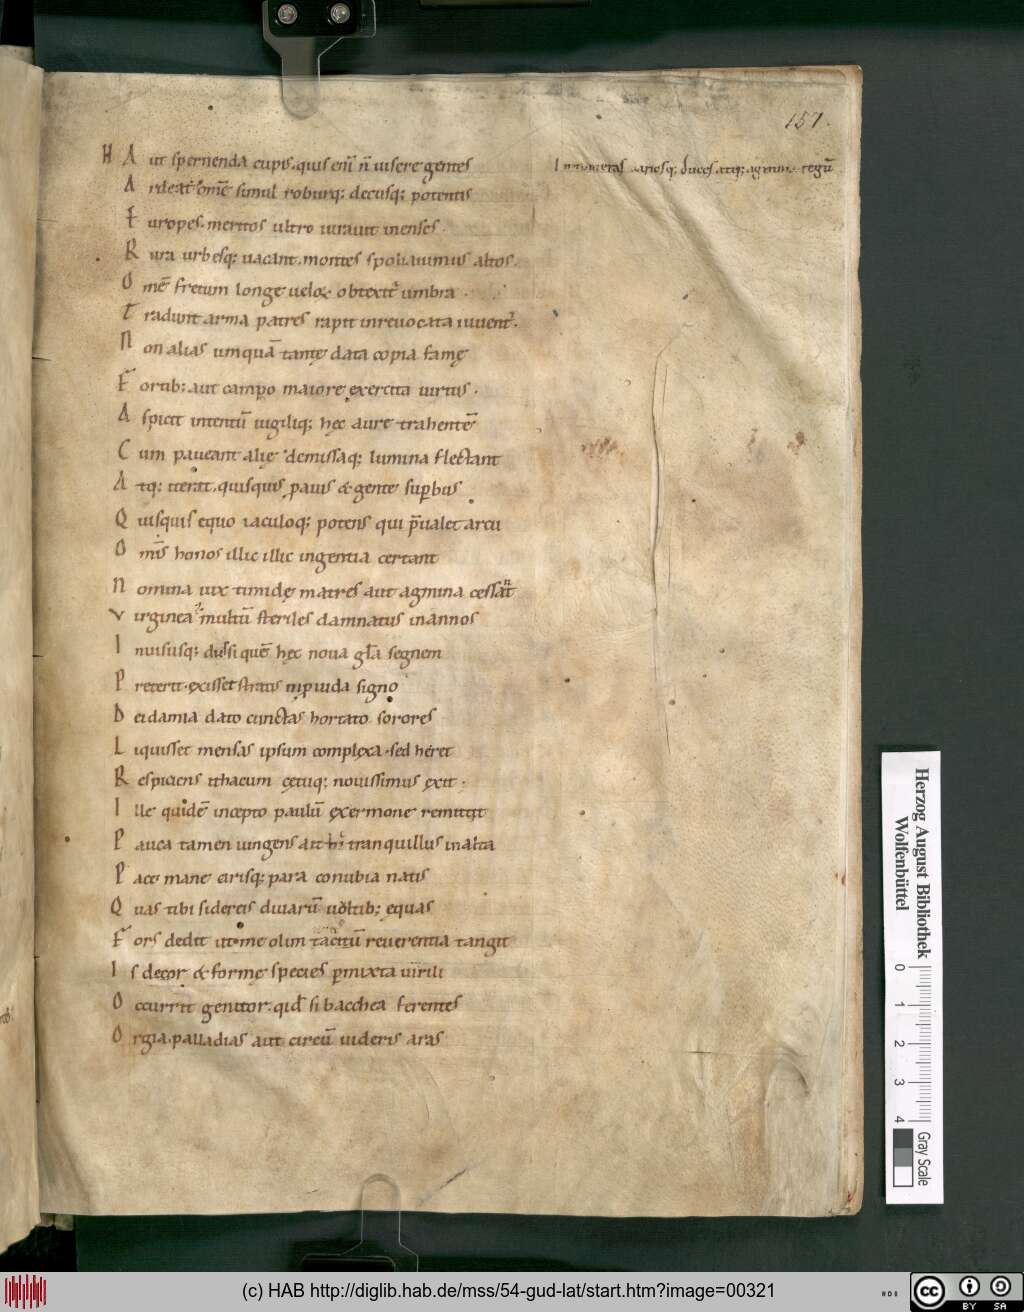 157.
H A ut spernenda cupis. quis eni᷄ n̄ uisere gentes
Innumeras uariosq; duces. atq; agmina regū
A rdeat. om̄e simul roburq; decusq; potentis
E uropes. meritos ultro iurauit in enses.
R ura urbesq; uacant. montes spoliauimus altos.
O mē fretum longe uelox obtexit᷑ umbra.
T radunt arma patres rapit inreuocata iuuent᷑.
N on alias umquā tantę data copia famę
F ortib; aut campo maiore exercita uirtus.
A spicit intentū uigiliq; hęc aure trahentē
C um paueant alię demissaq; lumina flectant
A tq; iterat. quisquis pauis & gente sup̄bus
Q uisquis equo iaculoq; potens qui p̄ualet arcu
O mīs honos illic illic ingentia certant
N omina uix timidę matres aut agmina cessant̄
V irginea multū steriles damnatus in annos
I nuisusq; dis si quē hęc noua gl̄a segnem
P reterit. exisset stratis nip uida signo
D eidamia dato cunctas hortato sorores
L iquisset mensas ipsum complexa. sed heret
R espiciens ithacum cętuq; nouissimus exit.
I lle quidē incepto paulū ex sermone remittit
P auca tamen iungens att᷑ tranquillus in alta
P ace mane carisq; para conubia natis
Q uas tibi sidereis diuarū uultib; equas
F ors dedit ut me olim tacitū reuerentia tangit
I s decor & formę species p̄mixta uirili
O ccurrit genitor. qid̄ si bacchea ferentes
O rgia. palladias aut circū uideris aras
Herzog August Bibliothek
Wolfenbüttel
0 1 2 3 4
Gray Scale
(c) HAB http://diglib.hab.de/mss/54-gud-lat/start.htm?image=00321
cc BY SA